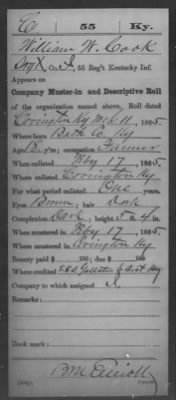 C | 55 | Ky.
William W. Cook
Co. I, 55 Reg't Kentucky Inf.
Appears on
Company Muster-in and Descriptive Roll
of the organization named above. Roll dated
Covington Ky Mch 11, 1865
Where born Bath Co. Ky
Age y'rs; occupation Farmer
When enlisted Feby 17, 1865
Where enlisted Covington Ky
For what period enlisted One years.
Eyes Brown; hair Dark
Complexion Dark; height 5 ft. 4 in.
When mustered in Feby 17, 1865
Where mustered in Covington Ky
Bounty paid $ 100; due $ 100
Where credited Gallatin Co Ky
Company to which assigned
Remarks:
Book mark:
Copyist.